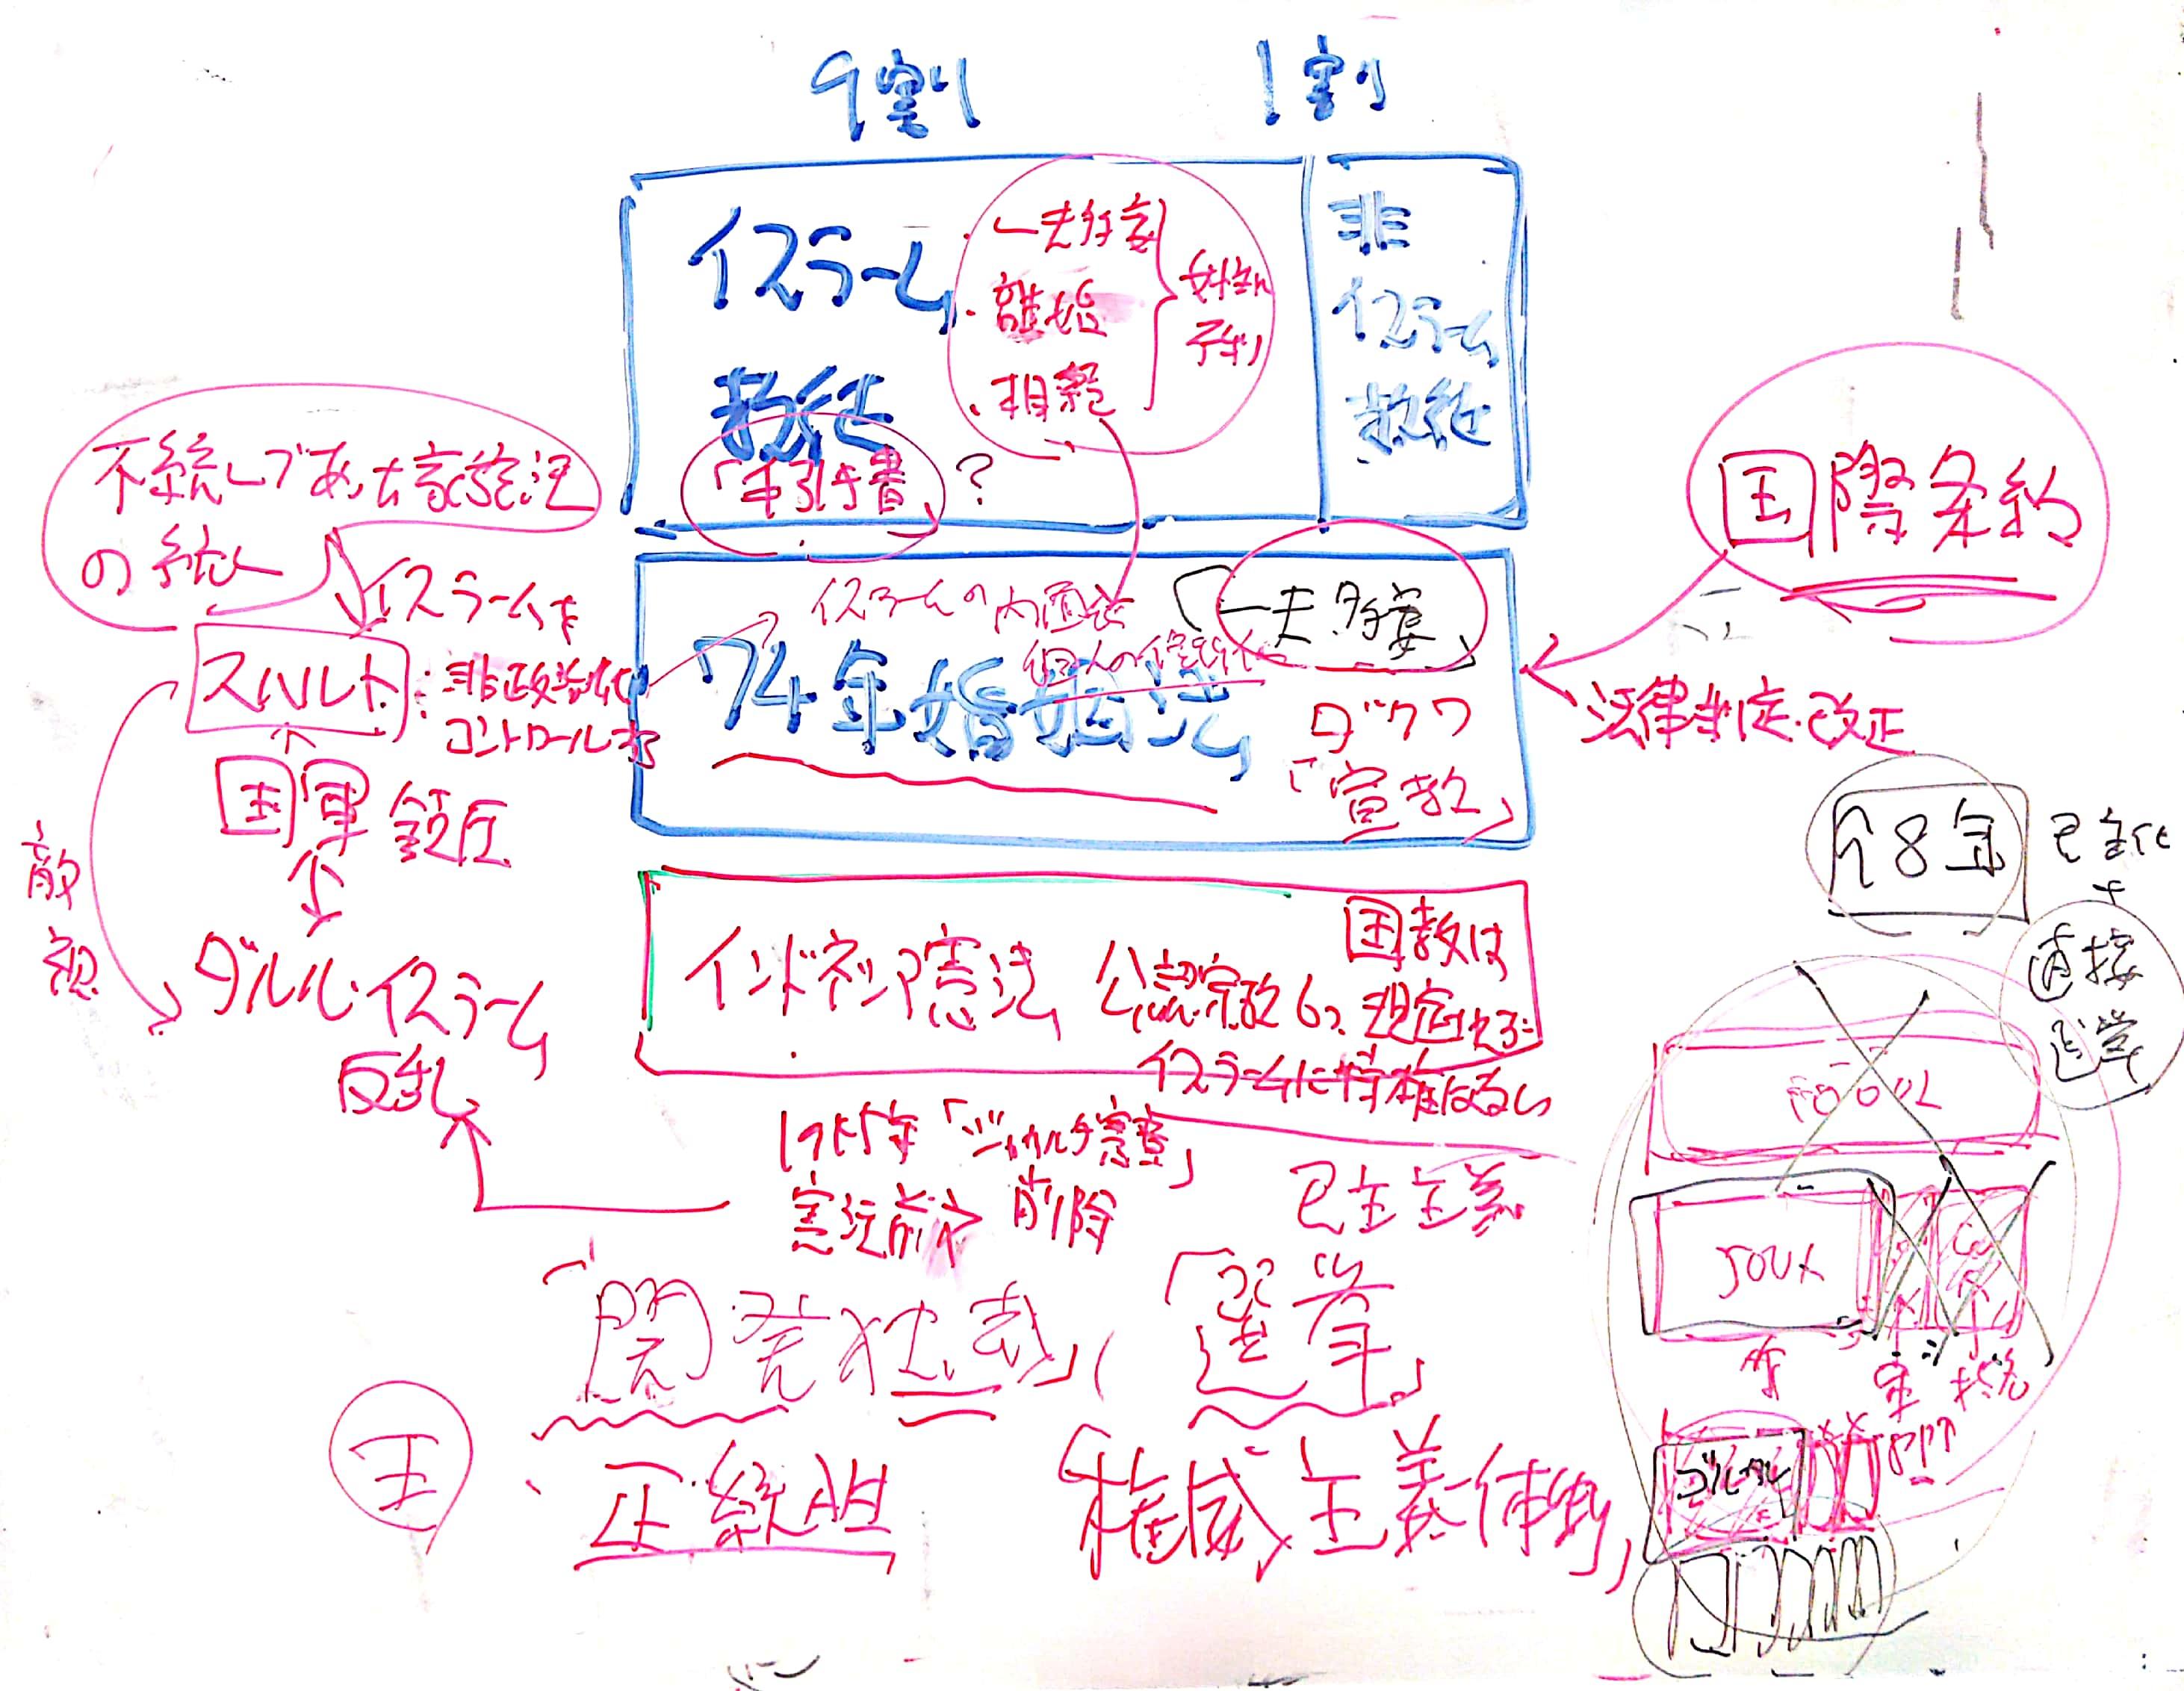 9割
1割
イスラーム
教徒
・一夫多妻
・離婚
・相続
「手引き書」?
非
イスラーム
教徒
不統一であった家族法
の統一
イスラームを
スハルト:非政治化
コントロールする
国軍 鎮圧
敵視
ダルル・イスラーム
反乱
イスラームの内面化
74年婚姻法
「一夫多妻」
ダクワ
「宣教」
国際条約
法律制定・改正
98年
民主化
直接
選挙
インドネシア憲法
公認宗教6つ
国教は
規定せず
イスラームに特権はなし
「ジャカルタ憲章」
憲法前文 削除
民主主義
「開発独裁」
「選挙」
王
正統性
「権威主義体制」
500人
ゴルカル
PPP